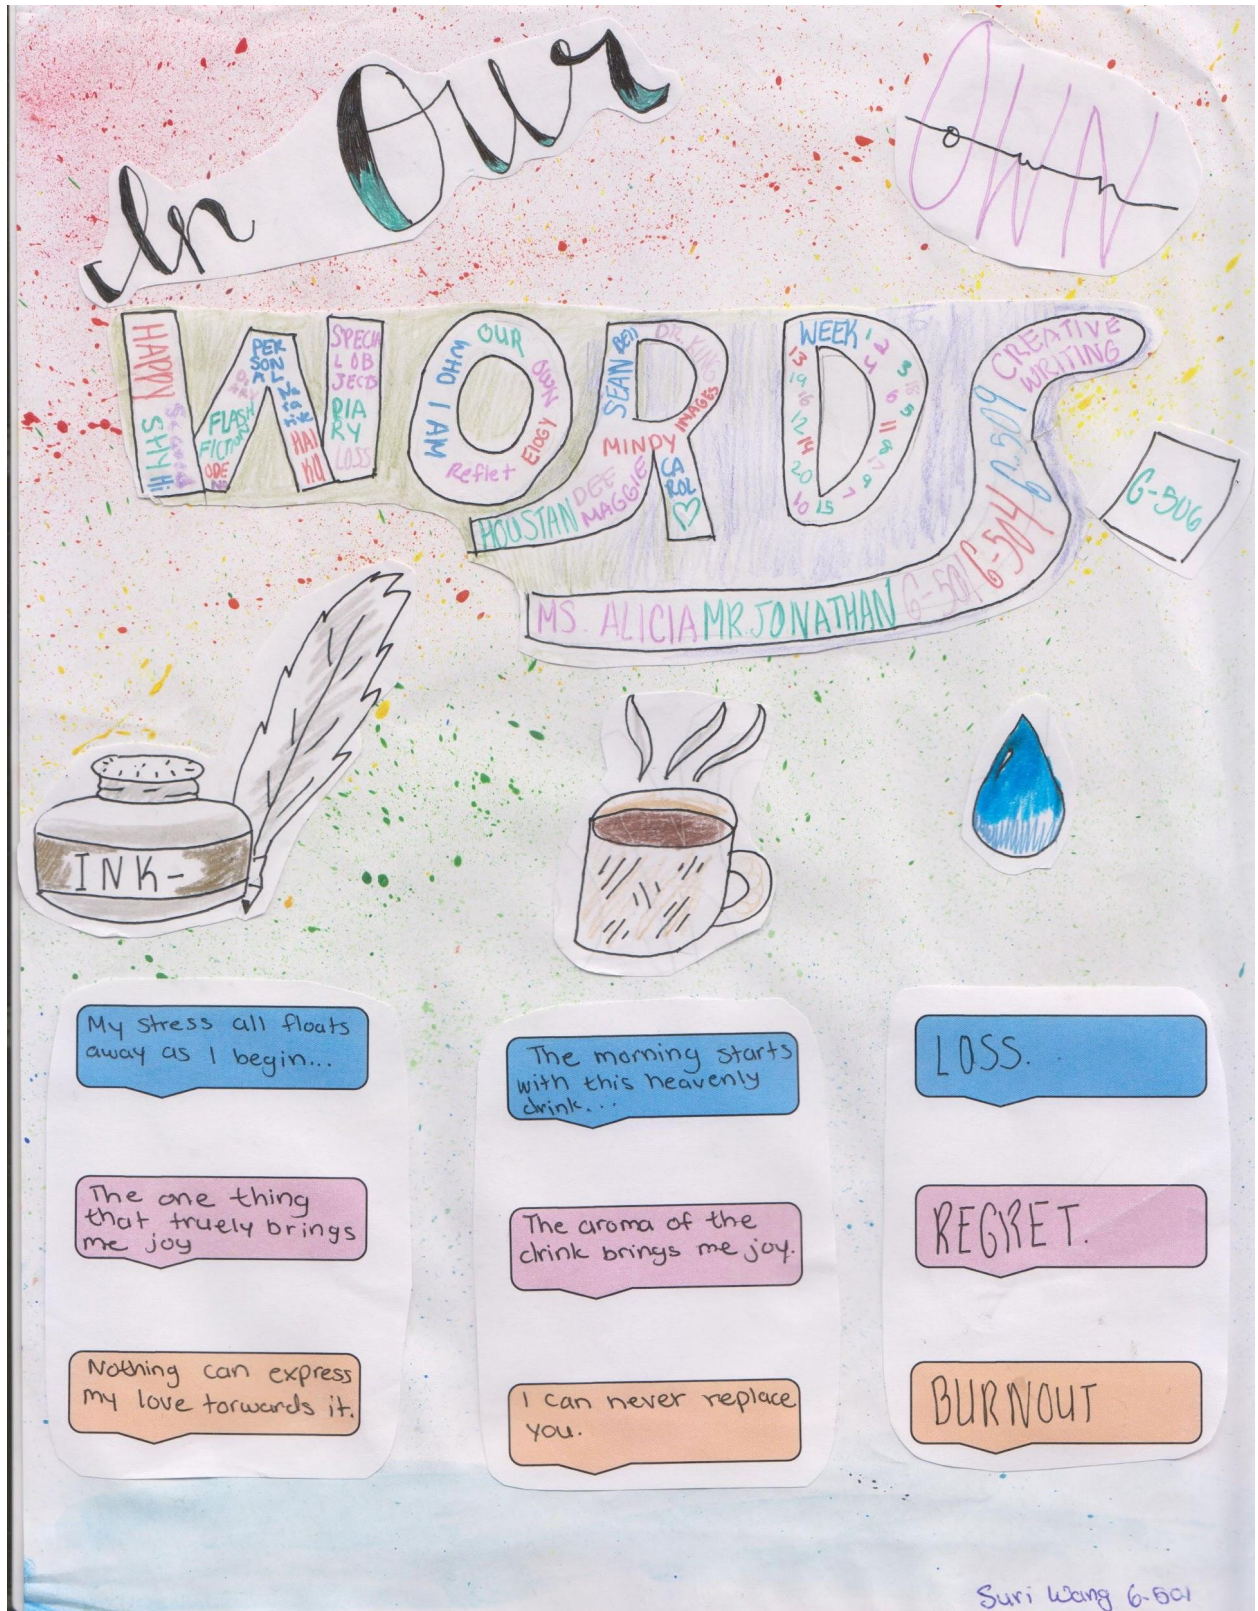 In Our
OWN
own
WORDS
HAPPY
SHY
Hi
FLASH
FICTION
ODE
PER
SON
AL
Na
ra
tive
HAI
KU
SPECIA
L OB
JECTS
DIA
RY
LOSS
WHO I AM
OUR
OWN
ElOGY
Reflet
SEAN
Ben
IMAGES
MINDY
CA
ROL
HOUSTAN
DEE
MAGGIE
WEEK 1
2
13
4
3
19
16
6
5
12
11
14
8
17
20
9
7
10
15
CREATIVE
WRITING
6-509
6-504
6-501
MS. ALICIA MR.JONATHAN
6-506
INK-
My stress all floats
away as I begin...
The one thing
that truely brings
me joy
Nothing can express
my love torwards it.
The morning starts
with this heavenly
drink...
The aroma of the
drink brings me joy.
I can never replace
you.
LOSS.
REGRET.
BURNOUT
Suri Wang 6-501